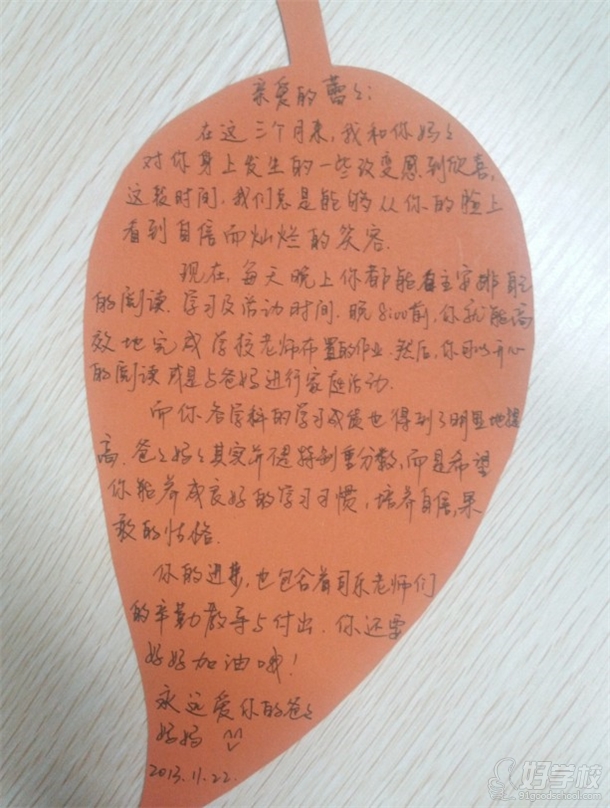 亲爱的蕾々:
在这三个月来,我和你妈々
对你身上发生的一些改变感到欣喜,
这段时间,我们总是能够从你的脸上
看到自信而灿烂的笑容.
现在,每天晚上你都能自主安排自己
的阅读、学习及活动时间.晚8:00前,你就能高
效地完成学校老师布置的作业.然后,你可以开心
的阅读或是与爸妈进行家庭活动.
而你各学科的学习成绩也得到了明显地提
高.爸々妈々其实并不是特别重分数,而是希望
你能养成良好的学习习惯,培养自信,果
敢的性格.
你的进步,也包含着可乐老师们
的辛勤教导与付出.你还要
好好加油哦!
永远爱你的爸々
妈妈
2013.11.22.
好学校
a1goodschool.com